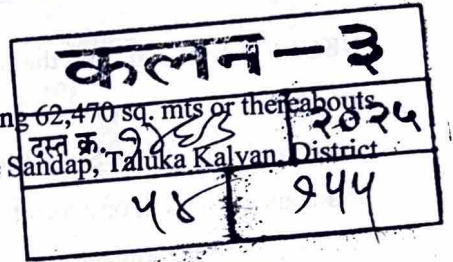 कलन - ३
ng 62,470 sq. mts or thereabouts
दस्त क्र. २०२५
Sandap, Taluka Kalyan, District
५४ १५५